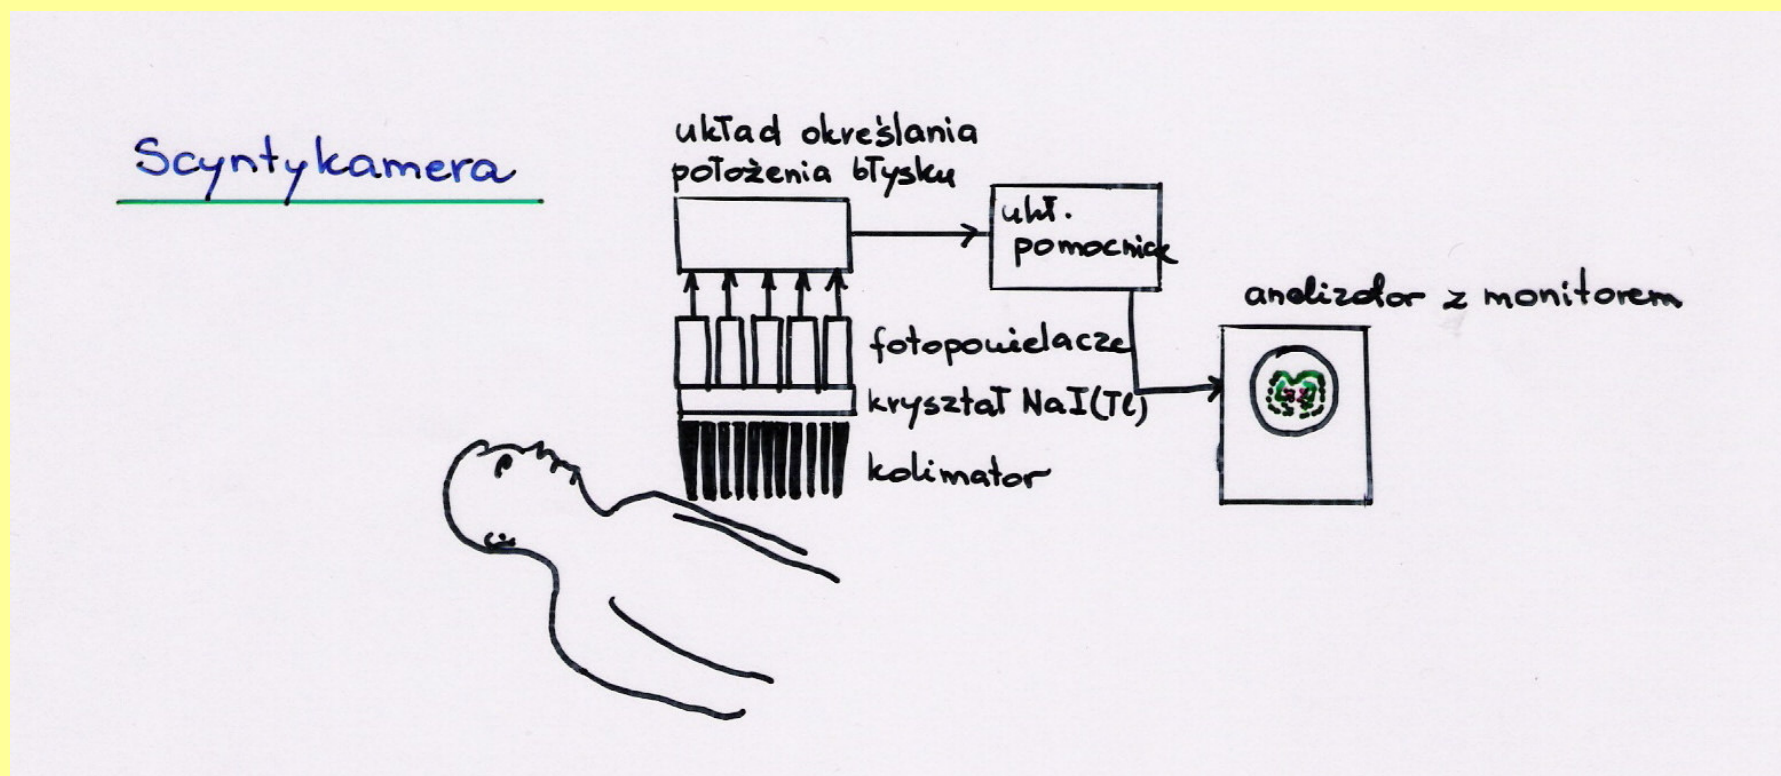 Scyntykamera
układ określania
położenia błysku
ukł.
pomocnicz
analizator z monitorem
fotopowielacze
kryształ NaI(Tl)
kolimator